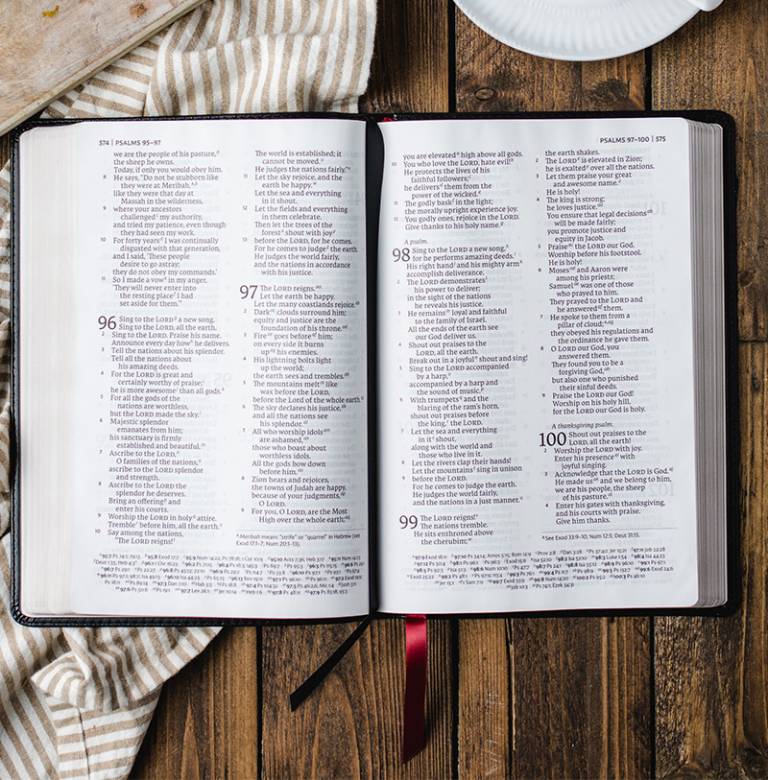 574 | PSALMS 95–97
we are the people of his pasture,
the sheep he owns.
Today, if only you would obey him.
8 He says, "Do not be stubborn like
they were at Meribah,
like they were that day at
Massah in the wilderness,
9 where your ancestors
challenged my authority,
and tried my patience, even though
they had seen my work.
10 For forty years I was continually
disgusted with that generation,
and I said, 'These people
desire to go astray;
they do not obey my commands.'
11 So I made a vow in my anger,
'They will never enter into
the resting place I had
set aside for them.'"
96 Sing to the LORD a new song.
Sing to the LORD, all the earth.
2 Sing to the LORD. Praise his name.
Announce every day how he delivers.
3 Tell the nations about his splendor.
Tell all the nations about
his amazing deeds.
4 For the LORD is great and
certainly worthy of praise;
he is more awesome than all gods.
5 For all the gods of the
nations are worthless,
but the LORD made the sky.
6 Majestic splendor
emanates from him;
his sanctuary is firmly
established and beautiful.
7 Ascribe to the LORD,
O families of the nations,
ascribe to the LORD splendor
and strength.
8 Ascribe to the LORD the
splendor he deserves.
Bring an offering and
enter his courts.
9 Worship the LORD in holy attire.
Tremble before him, all the earth.
10 Say among the nations,
"The LORD reigns!
The world is established; it
cannot be moved.
He judges the nations fairly."
11 Let the sky rejoice, and the
earth be happy.
Let the sea and everything
in it shout.
12 Let the fields and everything
in them celebrate.
Then let the trees of the
forest shout with joy
13 before the LORD, for he comes.
For he comes to judge the earth.
He judges the world fairly,
and the nations in accordance
with his justice.
97 The LORD reigns.
Let the earth be happy.
Let the many coastlands rejoice.
2 Dark clouds surround him;
equity and justice are the
foundation of his throne.
3 Fire goes before him;
on every side it burns
up his enemies.
4 His lightning bolts light
up the world;
the earth sees and trembles.
5 The mountains melt like
wax before the LORD,
before the Lord of the whole earth.
6 The sky declares his justice,
and all the nations see
his splendor.
7 All who worship idols
are ashamed,
those who boast about
worthless idols.
All the gods bow down
before him.
8 Zion hears and rejoices,
the towns of Judah are happy,
because of your judgments,
O LORD.
9 For you, O LORD, are the Most
High over the whole earth;
Meribah means "strife" or "quarrel" in Hebrew (see
Exod 17:1–7; Num 20:1–13).
PSALMS 97–100 | 575
you are elevated high above all gods.
10 You who love the LORD, hate evil!
He protects the lives of his
faithful followers;
he delivers them from the
power of the wicked.
11 The godly bask in the light;
the morally upright experience joy.
12 You godly ones, rejoice in the LORD.
Give thanks to his holy name.
A psalm.
98 Sing to the LORD a new song,
for he performs amazing deeds.
His right hand and his mighty arm
accomplish deliverance.
2 The LORD demonstrates
his power to deliver;
in the sight of the nations
he reveals his justice.
3 He remains loyal and faithful
to the family of Israel.
All the ends of the earth see
our God deliver us.
4 Shout out praises to the
LORD, all the earth.
Break out in a joyful shout and sing!
5 Sing to the LORD accompanied
by a harp,
accompanied by a harp and
the sound of music.
6 With trumpets and the
blaring of the ram's horn,
shout out praises before
the king, the LORD.
7 Let the sea and everything
in it shout,
along with the world and
those who live in it.
8 Let the rivers clap their hands!
Let the mountains sing in unison
9 before the LORD.
For he comes to judge the earth.
He judges the world fairly,
and the nations in a just manner.
99 The LORD reigns!
The nations tremble.
He sits enthroned above
the cherubim;
the earth shakes.
2 The LORD is elevated in Zion;
he is exalted over all the nations.
3 Let them praise your great
and awesome name.
He is holy!
4 The king is strong;
he loves justice.
You ensure that legal decisions
will be made fairly;
you promote justice and
equity in Jacob.
5 Praise the LORD our God.
Worship before his footstool.
He is holy!
6 Moses and Aaron were
among his priests;
Samuel was one of those
who prayed to him.
They prayed to the LORD and
he answered them.
7 He spoke to them from a
pillar of cloud;
they obeyed his regulations and
the ordinance he gave them.
8 O LORD our God, you
answered them.
They found you to be a
forgiving God,
but also one who punished
their sinful deeds.
9 Praise the LORD our God!
Worship on his holy hill,
for the LORD our God is holy.
A thanksgiving psalm.
100 Shout out praises to the
LORD, all the earth!
2 Worship the LORD with joy.
Enter his presence with
joyful singing.
3 Acknowledge that the LORD is God.
He made us and we belong to him,
we are his people, the sheep
of his pasture.
4 Enter his gates with thanksgiving,
and his courts with praise.
Give him thanks.
See Exod 33:9–10; Num 12:5; Deut 31:15.